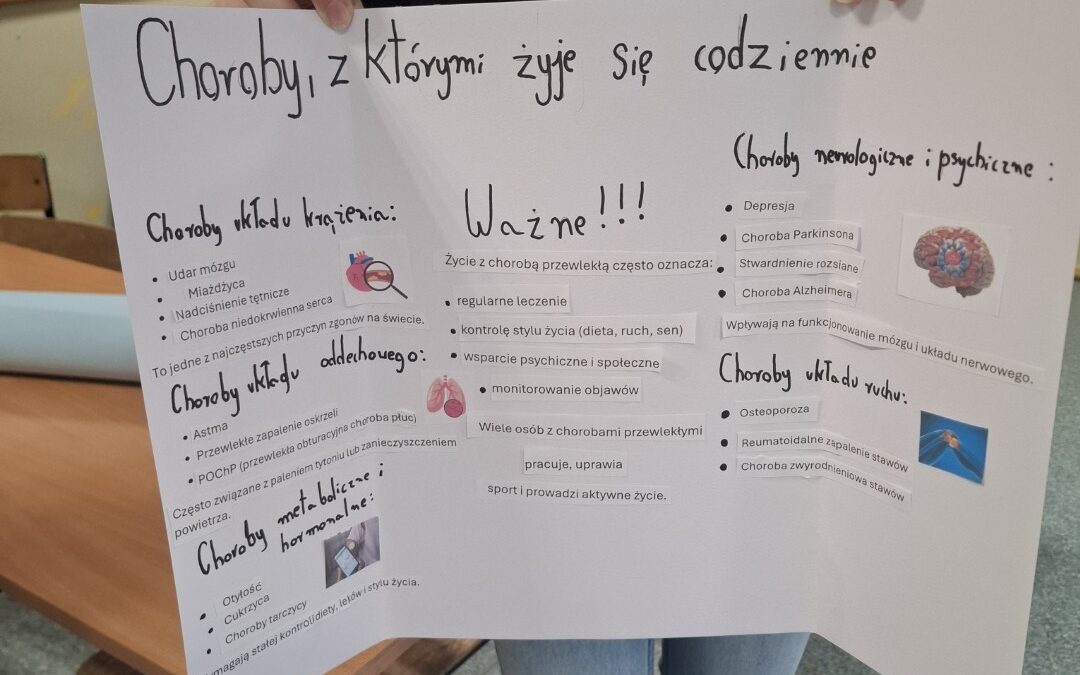 Choroby, z którymi żyje się codziennie
Choroby układu krążenia:
• Udar mózgu
• Miażdżyca
• Nadciśnienie tętnicze
• Choroba niedokrwienna serca
To jedne z najczęstszych przyczyn zgonów na świecie.
Choroby układu oddechowego:
• Astma
• Przewlekłe zapalenie oskrzeli
• POChP (przewlekła obturacyjna choroba płuc)
Często związane z paleniem tytoniu lub zanieczyszczeniem
powietrza.
Choroby metaboliczne i
hormonalne:
• Otyłość
• Cukrzyca
• Choroby tarczycy
stałej kontroli diety, leków i stylu życia.
Ważne!!!
Życie z chorobą przewlekłą często oznacza:
• regularne leczenie
• kontrolę stylu życia (dieta, ruch, sen)
• wsparcie psychiczne i społeczne
• monitorowanie objawów
Wiele osób z chorobami przewlekłymi
pracuje, uprawia
sport i prowadzi aktywne życie.
Choroby neurologiczne i psychiczne:
• Depresja
• Choroba Parkinsona
• Stwardnienie rozsiane
• Choroba Alzheimera
Wpływają na funkcjonowanie mózgu i układu nerwowego.
Choroby układu ruchu:
• Osteoporoza
• Reumatoidalne zapalenie stawów
• Choroba zwyrodnieniowa stawów